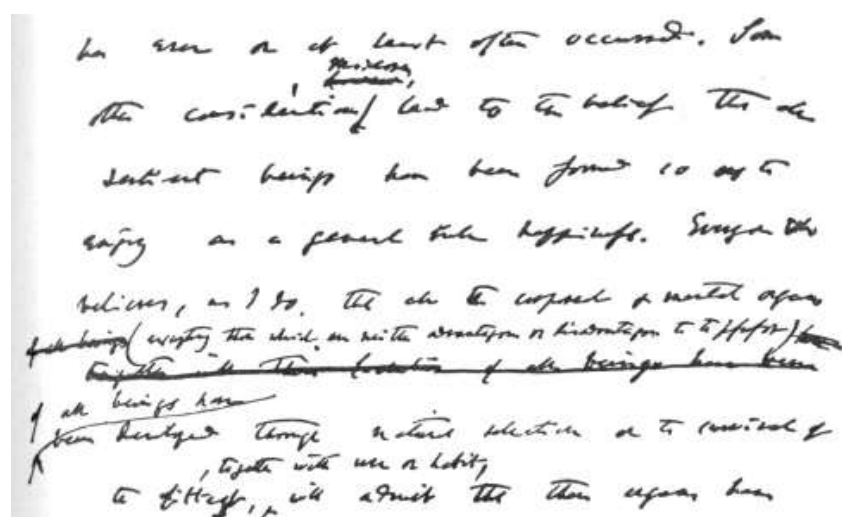 has ever or at least often occurred. Some
moreover,
other considerations, lead to the belief that all
sentient beings have been formed so as to
enjoy as a general rule happiness. Everyone who
believes, as I do, that all the corporeal & mental organs
of all beings (excepting those which are neither advantageous or disadvantageous to the possessor)
together with their of all beings have been
of all beings have
been developed through natural selection or the survival of
, together with use or habit,
the fittest, will admit that these organs have